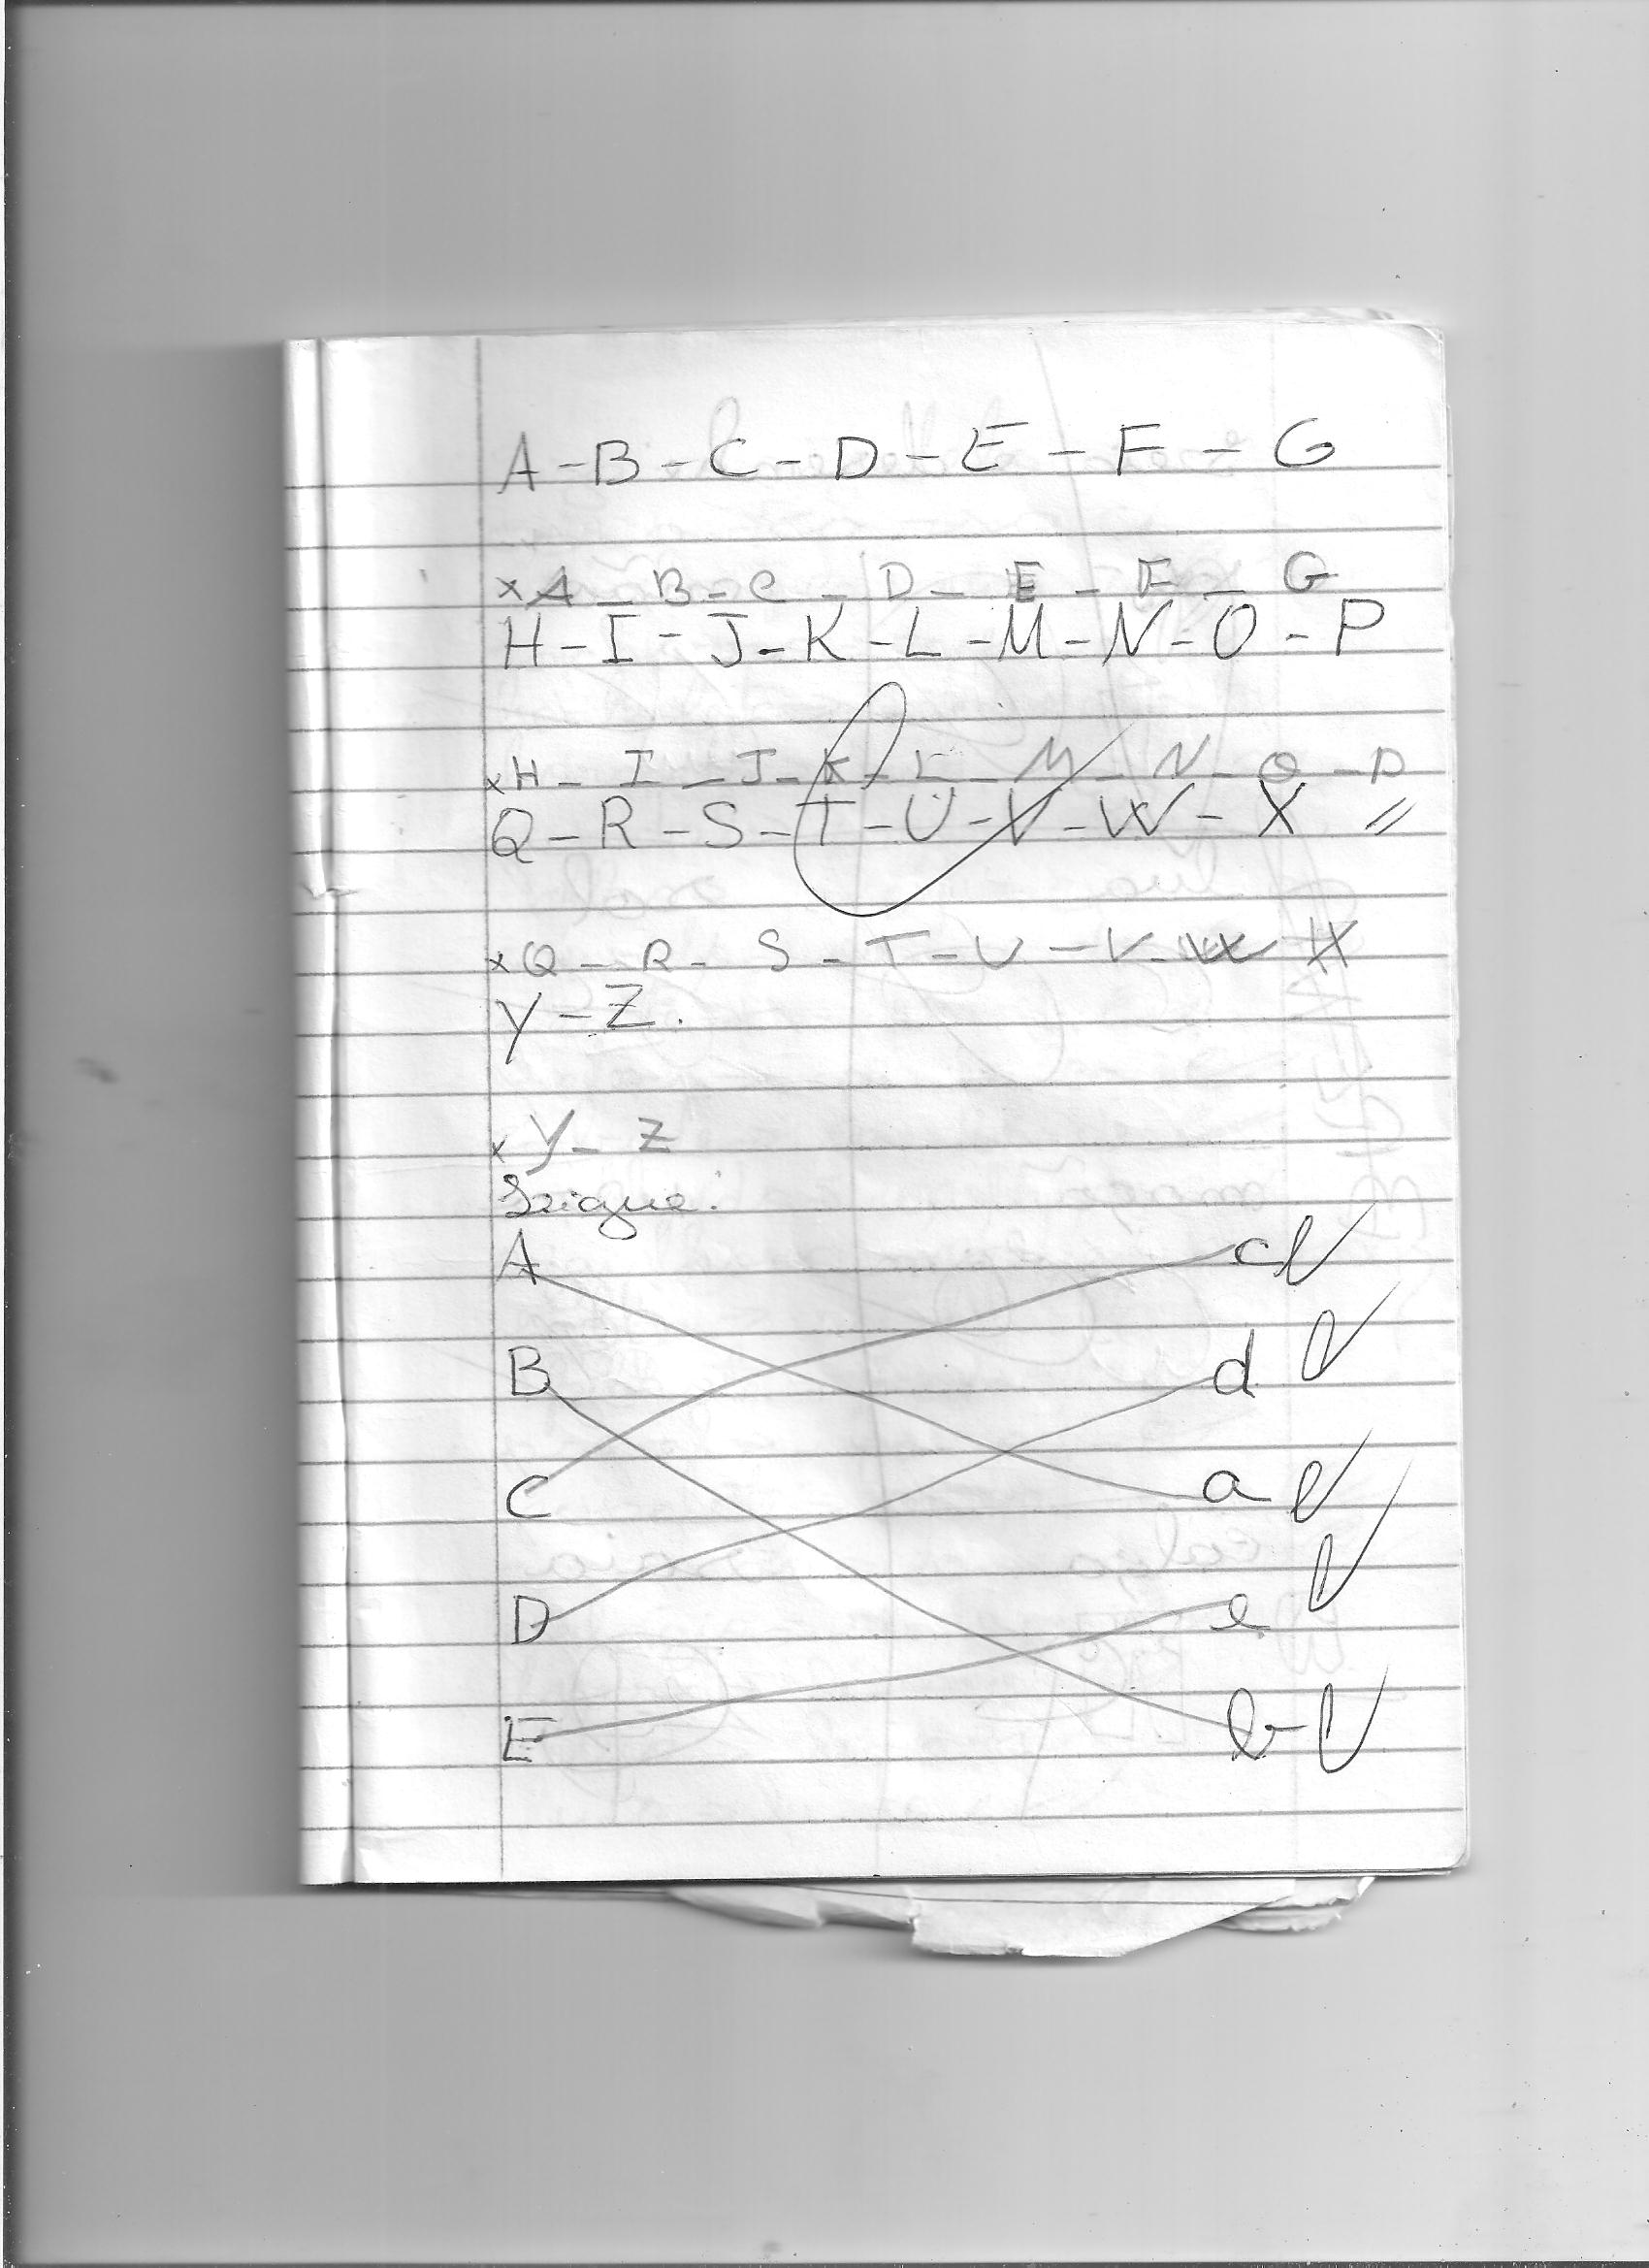 A - B - C - D - E - F - G
x A - B - C - D - E - F - G
H - I - J - K - L - M - N - O - P
x H - I - J - K - L - M - N - O - P
Q - R - S - T - U - V - W - X //
x Q - R - S - T - U - V - W X
Y - Z.
x Y - Z
A c
B d
C a
D e
E b